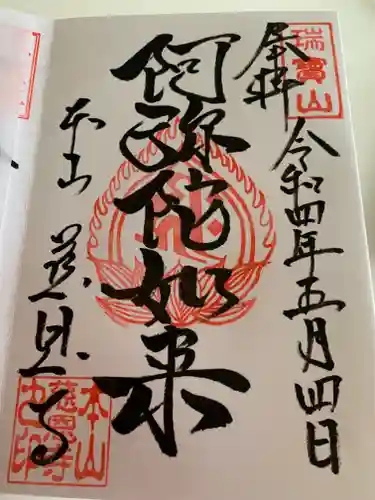 奉拝
瑞寳山
令和四年五月四日
阿弥陀如来
本山
慈恩寺
本山
慈恩寺
之印